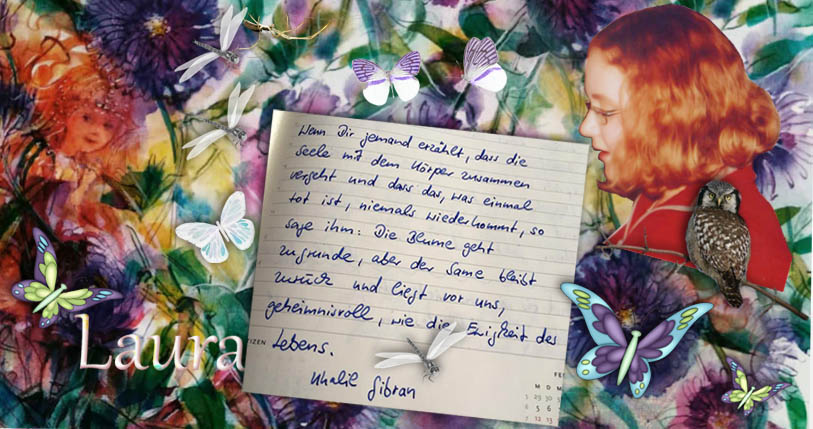 Wenn Dir jemand erzählt, dass die
Seele mit dem Körper zusammen
vergeht und dass das, was einmal
tot ist, niemals wiederkommt, so
sage ihm: Die Blume geht
zugrunde, aber der Same bleibt
zurück und liegt vor uns,
geheimnisvoll, wie die Ewigkeit des
Lebens.
Khalil Gibran
Laura
IZEN
FE
M D M
5 29 30
6 5 6
7 12 13